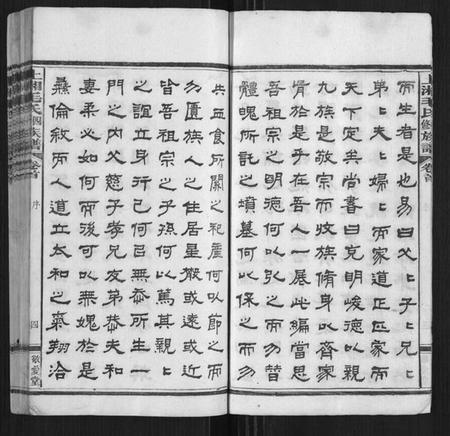 上湘毛氏四修族譜 卷首
而生者是也易曰父〻子〻兄〻
弟〻夫〻婦〻而家道正正家而
天下定矣尚書曰克明峻德以親
九族是敬宗而收族脩身以齊家
胥於是乎在吾人一展此編當思
吾祖宗之明德何以弘之而勿替
體魄所託之墳墓何以保之而勿
共血食所關之祀產何以節之而
勿匱族人之住居星散或遠或近
皆吾祖宗之子孫何以篤其親〻
之誼立身行己何㠯無忝所生一
門之內父慈子孝兄友弟恭夫和
妻柔必如何而後可以無媿於是
彝倫敘而人道立太和之氣翔洽
上湘毛氏四修族譜 卷首 序 四 敬愛堂